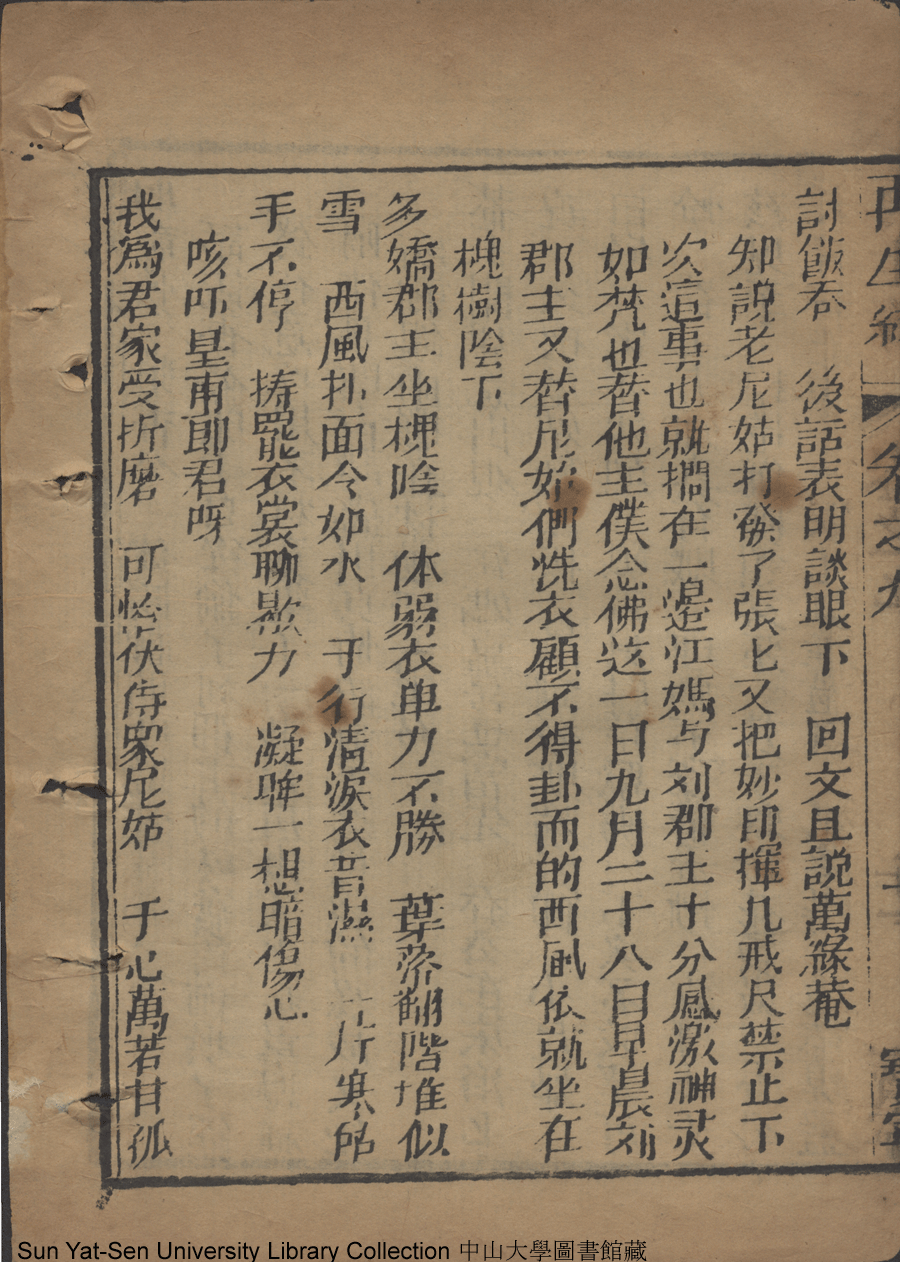 再生緣
卷之九
討飯吞　後話表明談眼下　回文且說萬緣菴
知說老尼姑打發了張七又把妙印揮几戒尺禁止下
次這事也就擱在一邊江媽与刘郡主十分感激神灵
如梵也替他主僕念佛這一日九月二十八日早晨刘
郡主又替尼姑們洗衣顧不得卦而的西風依就坐在
槐樹陰下
多嬌郡主坐槐陰　体弱衣单力不勝　葉落翻階堆似
雪　西風扑面令如水　于行清淚衣音濕　片片寒
手不停　擣罷衣裳聊歇力　凝眸一想暗傷心
咳吓皇甫郎君呀
我為君家受折磨　可憐伏侍眾尼姑　千心萬若甘孤
Sun Yat-Sen University Library Collection 中山大學圖書館藏